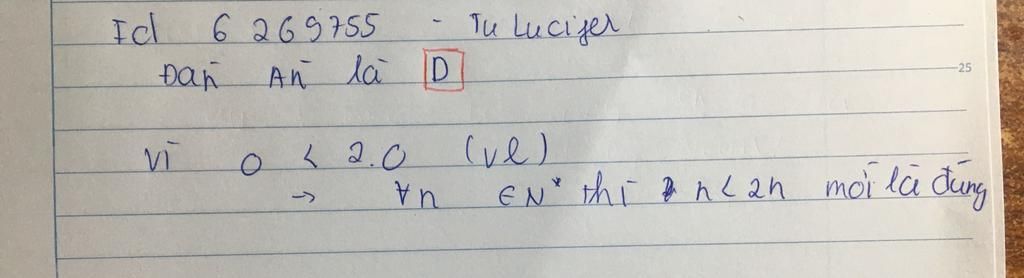 Id 6269755 - Tu Lucifer
Đáp Án là D
25
vì 0 < 2.0 (vl)
→ ∀n ∈ N* thì n < 2n mới là đúng